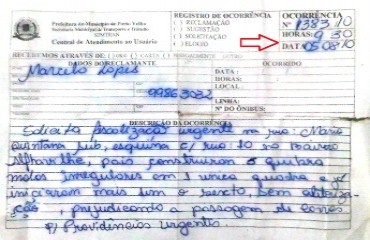 Prefeitura do Município de Porto Velho
Secretaria Municipal de Transportes e Trânsito
SEMTRAN
Central de Atendimento ao Usuário
REGISTRO DE OCORRÊNCIA
( ) RECLAMAÇÃO
( ) SUGESTÃO
( ) SOLICITAÇÃO
( ) ELOGIO
OCORRÊNCIA
Nº 1383/10
HORAS: 9 30
DATA: 05 08 10
RECEBEMOS ATRAVÉS DE
DADOS DO RECLAMANTE
OCORRIDO
Marcelo Lopes
99863032
DATA:
HORAS:
LOCAL:
LINHA:
Nº DO ÔNIBUS:
DESCRIÇÃO DA OCORRÊNCIA
Solicita fiscalização urgente na rua: Mário
Quintana sub, esquina c/ rua: 10 no Bairro
pois construiram o quebra
molas irregulares em 1 unica quadra e já
iniciaram mais um o resto, sem autoriza-
ção, prejudicando a passagem de carros
p/ Providências Urgentes.